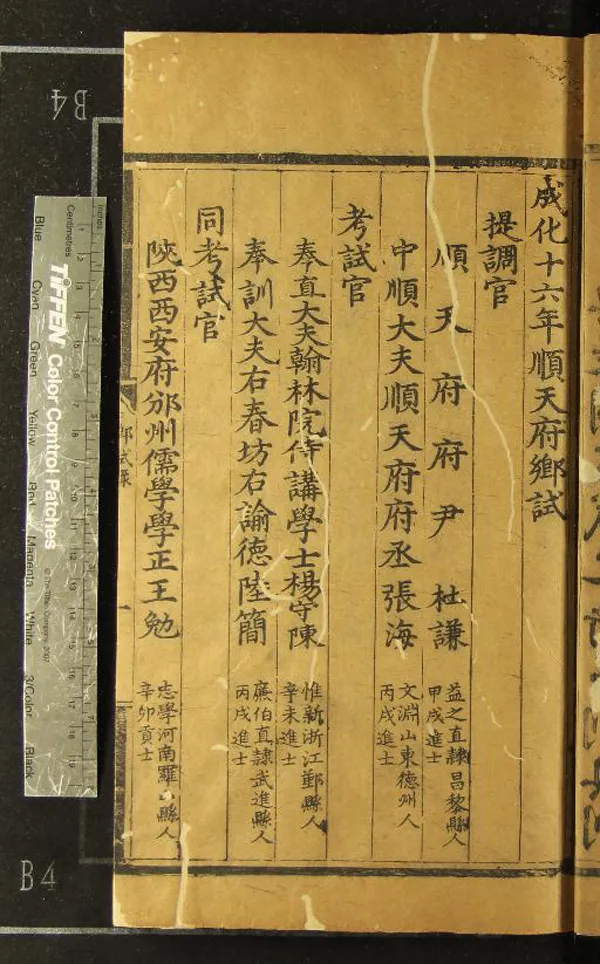 成化十六年順天府鄉試
提調官
順天府府尹杜謙
益之直隸昌黎縣人
甲戌進士
中順大夫順天府府丞張海
文淵山東德州人
丙戌進士
考試官
奉直大夫翰林院侍講學士楊守陳
惟新浙江鄞縣人
辛未進士
奉訓大夫右春坊右諭德陸簡
廉伯直隸武進縣人
丙戌進士
同考試官
陝西西安府邠州儒學學正王勉
志學河南羅山縣人
辛卯貢士
鄉試錄
一
B4
B4
Inches
Centimetres
TIFFEN Color Control Patches
© The Tiffen Company, 2007
Blue
Cyan
Green
Yellow
Red
Magenta
White
3/Color
Black